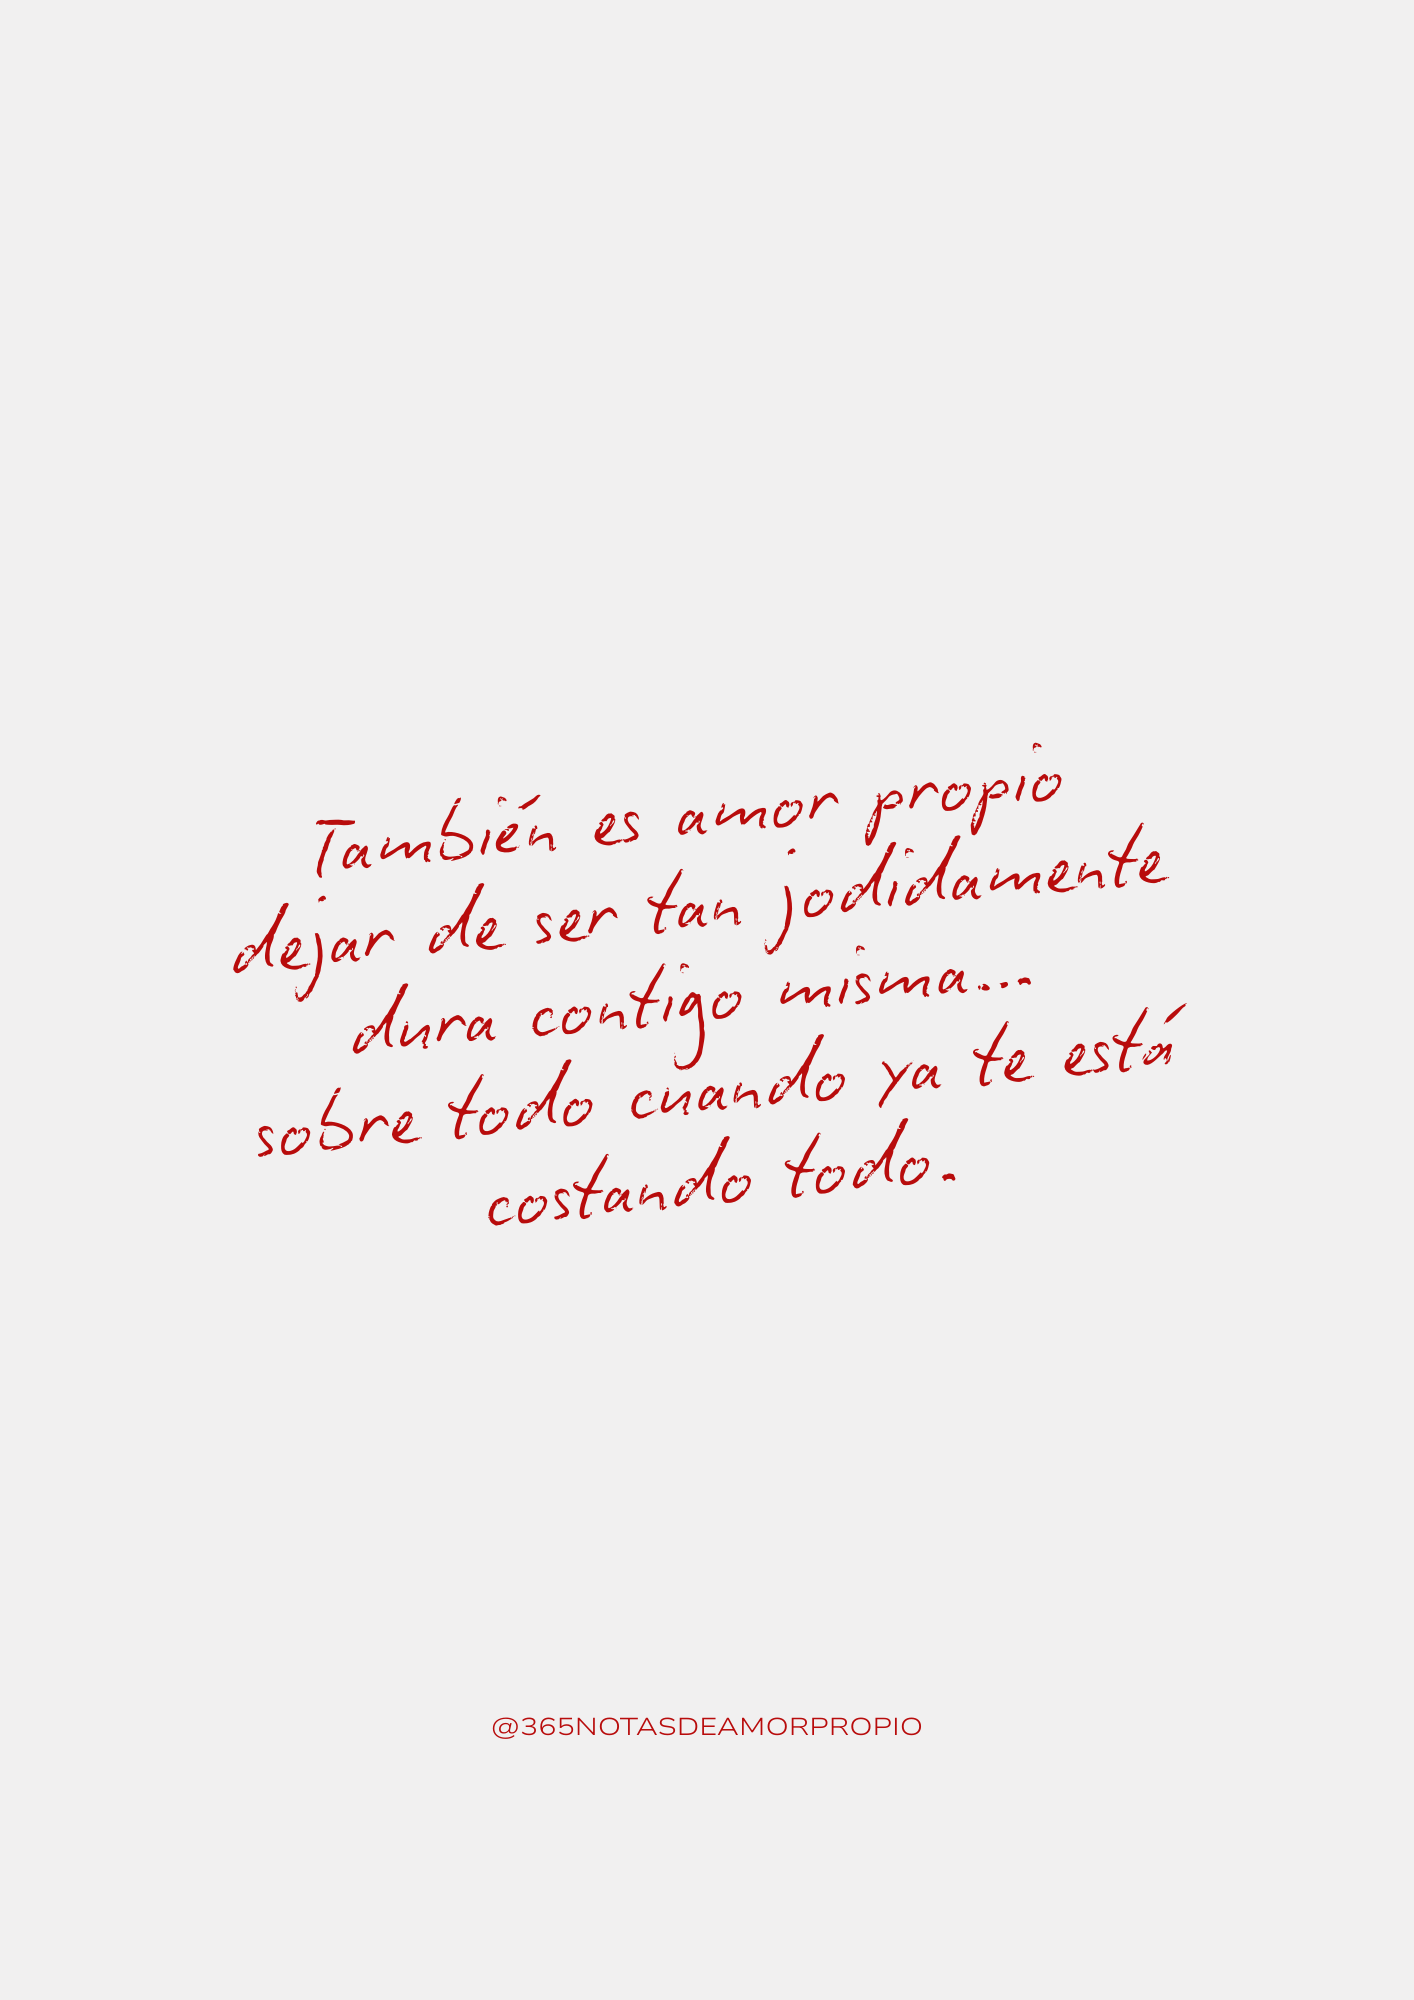 También es amor propio
dejar de ser tan jodidamente
dura contigo misma...
sobre todo cuando ya te está
costando todo.
@365NOTASDEAMORPROPIO